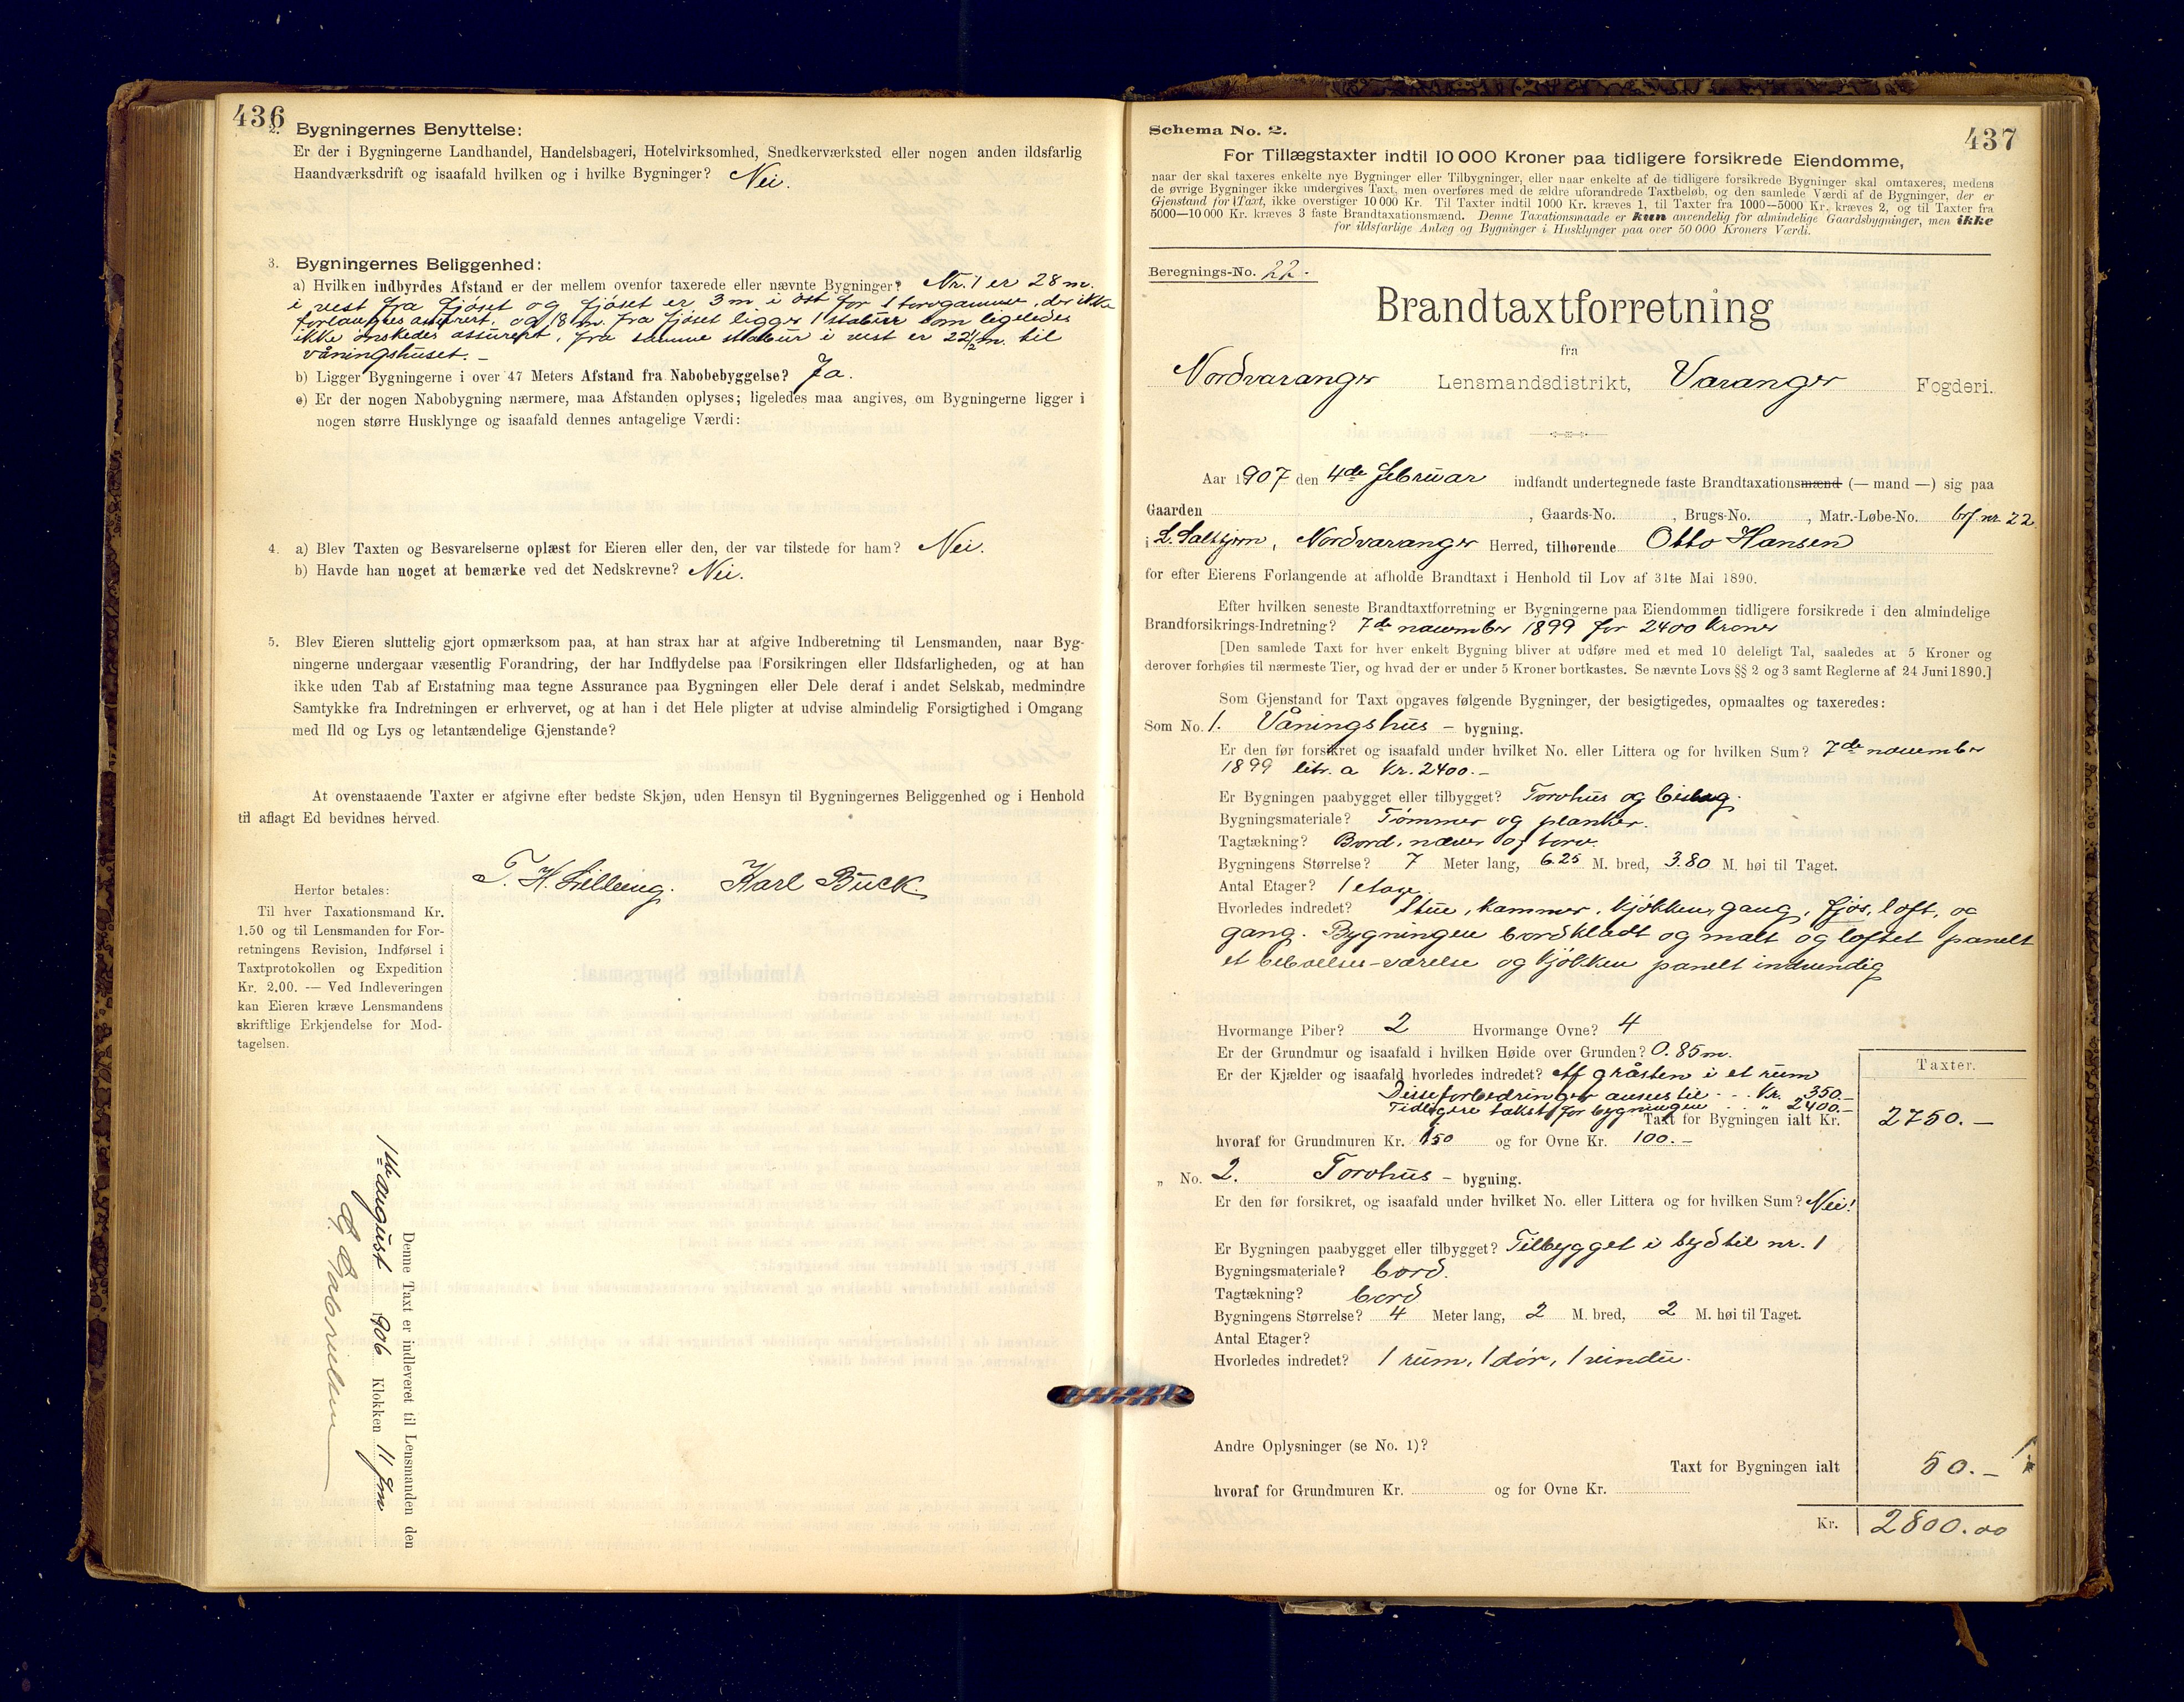 436
2. Bygningernes Benyttelse:
Er der i Bygningerne Landhandel, Handelsbageri, Hotelvirksomhed, Snedkerværksted eller nogen anden ildsfarlig
Haandværksdrift og isaafald hvilken og i hvilke Bygninger? Nei.
3. Bygningernes Beliggenhed:
a) Hvilken indbyrdes Afstand er der mellem ovenfor taxerede eller nævnte Bygninger? Nr. 1 er 28 m.
i vest fra fjöset og fjöset er 3 m i öst for 1 torvgamme, der ikke
forlanges assurert, og 18 m. fra fjöset ligger 1 stabur som ligeledes
ikke önskedes assurert, fra samme stabur i vest er 22 1/2 m. til
våningshuset. –
b) Ligger Bygningerne i over 47 Meters Afstand fra Nabobebyggelse? Ja.
c) Er der nogen Nabobygning nærmere, maa Afstanden oplyses; ligeledes maa angives, om Bygningerne ligger i
nogen større Husklynge og isaafald dennes antagelige Værdi:
4. a) Blev Taxten og Besvarelserne oplæst for Eieren eller den, der var tilstede for ham? Nei.
b) Havde han noget at bemærke ved det Nedskrevne? Nei.
5. Blev Eieren sluttelig gjort opmærksom paa, at han strax har at afgive Indberetning til Lensmanden, naar Byg-
ningerne undergaar væsentlig Forandring, der har Indflydelse paa Forsikringen eller Ildsfarligheden, og at han
ikke uden Tab af Erstatning maa tegne Assurance paa Bygningen eller Dele deraf i andet Selskab, medmindre
Samtykke fra Indretningen er erhvervet, og at han i det Hele pligter at udvise almindelig Forsigtighed i Omgang
med Ild og Lys og letantændelige Gjenstande?
At ovenstaaende Taxter er afgivne efter bedste Skjøn, uden Hensyn til Bygningernes Beliggenhed og i Henhold
til aflagt Ed bevidnes herved.
T. H. Lilleeng. Karl Buck.
Herfor betales:
Til hver Taxationsmand Kr.
1.50 og til Lensmanden for For-
retningens Revision, Indførsel i
Taxtprotokollen og Expedition
Kr. 2,00. — Ved Indleveringen
kan Eieren kræve Lensmandens
skriftlige Erkjendelse for Mod-
tagelsen.
Denne Taxt er indleveret til Lensmanden den
1ste august 1906 Klokken 11 fm
C. Gabrielsen
437
Schema No. 2.
For Tillægstaxter indtil 10 000 Kroner paa tidligere forsikrede Eiendomme,
naar der skal taxeres enkelte nye Bygninger eller Tilbygninger, eller naar enkelte af de tidligere forsikrede Bygninger skal omtaxeres, medens
de øvrige Bygninger ikke undergives Taxt, men overføres med de ældre uforandrede Taxtbeløb, og den samlede Værdi af de Bygninger, der er
Gjenstand for Taxt, ikke overstiger 10 000 Kr. Til Taxter indtil 1000 Kr. kræves 1, til Taxter fra 1000—5000 Kr. kræves 2, og til Taxter fra
5000—10 000 Kr. kræves 3 faste Brandtaxationsmænd. Denne Taxationsmaade er kun anvendelig for almindelige Gaardsbygninger, men ikke
for ildsfarlige Anlæg og Bygninger i Husklynger paa over 50 000 Kroners Værdi.
Beregnings-No. 22.
Brandtaxtforretning
fra
Nordvaranger Lensmandsdistrikt, Varanger Fogderi.
Aar 1907 den 4de februar indfandt undertegnede faste Brandtaxationsmænd (— mand —) sig paa
Gaarden , Gaards-No. , Brugs-No. , Matr.-Løbe-No. brf. nr. 22
i L. Saltjern, Nordvaranger Herred, tilhørende Otto Hansen
for efter Eierens Forlangende at afholde Brandtaxt i Henhold til Lov af 31te Mai 1890.
Efter hvilken seneste Brandtaxtforretning er Bygningerne paa Eiendommen tidligere forsikrede i den almindelige
Brandforsikrings-Indretning? 7de november 1899 for 2400 kroner
[Den samlede Taxt for hver enkelt Bygning bliver at udføre med et med 10 deleligt Tal, saaledes at 5 Kroner og
derover forhøies til nærmeste Tier, og hvad der er under 5 Kroner bortkastes. Se nævnte Lovs §§ 2 og 3 samt Reglerne af 24 Juni 1890.]
Som Gjenstand for Taxt opgaves følgende Bygninger, der besigtigedes, opmaaltes og taxeredes:
Som No. 1. Våningshus – bygning.
Er den før forsikret og isaafald under hvilket No. eller Littera og for hvilken Sum? 7de november
1899 litr. a Kr. 2400.–
Er Bygningen paabygget eller tilbygget? Torvhus og bislag.
Bygningsmateriale? Tömmer og planker.
Tagtækning? Bord, næver og torv.
Bygningens Størrelse? 7 Meter lang, 6.25 M. bred, 3.80 M. høi til Taget.
Antal Etager? 1 etage.
Hvorledes indredet? Stue, kammer, kjökken, gang, fjös, loft, og
gang. Bygningen bordklædt og malt og loftet panelt
et beboelses-værelse og kjökken panelt indvendig
Hvormange Piber? 2 Hvormange Ovne? 4
Er der Grundmur og isaafald i hvilken Høide over Grunden? 0.85 m.
Er der Kjælder og isaafald hvorledes indredet? Af gråsten i et rum
Taxter.
Disse forbedringer ansees til - - Kr. 350.–
Tidligere takst for bygningen - - " 2400.–
Taxt for Bygningen ialt Kr. 2750.–
hvoraf for Grundmuren Kr. 150 og for Ovne Kr. 100.–
„ No. 2. Torvhus – bygning.
Er den før forsikret, og isaafald under hvilket No. eller Littera og for hvilken Sum? Nei!
Er Bygningen paabygget eller tilbygget? Tilbygget i syd til nr. 1
Bygningsmateriale? bord.
Tagtækning? bord
Bygningens Størrelse? 4 Meter lang, 2 M. bred, 2 M. høi til Taget.
Antal Etager?
Hvorledes indredet? 1 rum, 1 dör, 1 vindu.
Andre Oplysninger (se No. 1)?
Taxt for Bygningen ialt 50.–
hvoraf for Grundmuren Kr. og for Ovne Kr.
Kr. 2800.00